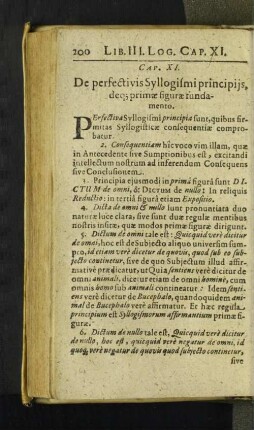 200 LIB. III. LOG. CAP. XI.
CAP. XI.
De perfectivis Syllogiſmi principijs,
deq; primæ figuræ funda-
mento.
PErfectiva Syllogiſmi principia ſunt, quibus fir-
mitas Syllogiſticæ conſequentiæ compro-
batur.
2. Conſequentiam hîc voco vim illam, quæ
in Antecedente ſive Sumptionibus eſt, excitandi
intellectum noſtrum ad inferendum Conſequens
ſive Concluſionem.
3. Principia ejusmodi in primâ figurâ ſunt DI-
CTUM de omni, & DICTUM de nullo: In reliquis
Reductio: in tertiâ figurâ etiam Expoſitio.
4. Dicta de omni & nullo ſunt pronunciata duo
naturæ luce clara, ſive ſunt duæ regulæ mentibus
noſtris inſitæ, quæ modos primæ figuræ dirigunt.
5. Dictum de omni tale eſt: Quicquid verè dicitur
de omni, hoc eſt de Subjecto aliquo univerſim ſum-
pto, id etiam verè dicitur de quovis, quod ſub eo ſub-
jecto continetur, ſive de quo Subjectum illud affir-
mativè prædicatur, ut; Quia ſentiens verè dicitur de
omni animali, dicetur etiam de omni homine, cum
omnis homo ſub animali contineatur: Idem ſenti-
ens verè dicetur de Bucephalo, quandoquidem ani-
mal de Bucephalo verè affirmatur. Et hæc regula
principium eſt Syllogiſmorum affirmantium primæ fi-
guræ.
6. Dictum de nullo tale eſt, Quicquid verè dicitur
de nullo, hoc eſt, quicquid verè negatur de omni, id
quoq; verè negatur de quovis quod ſubjecto continetur,
ſive